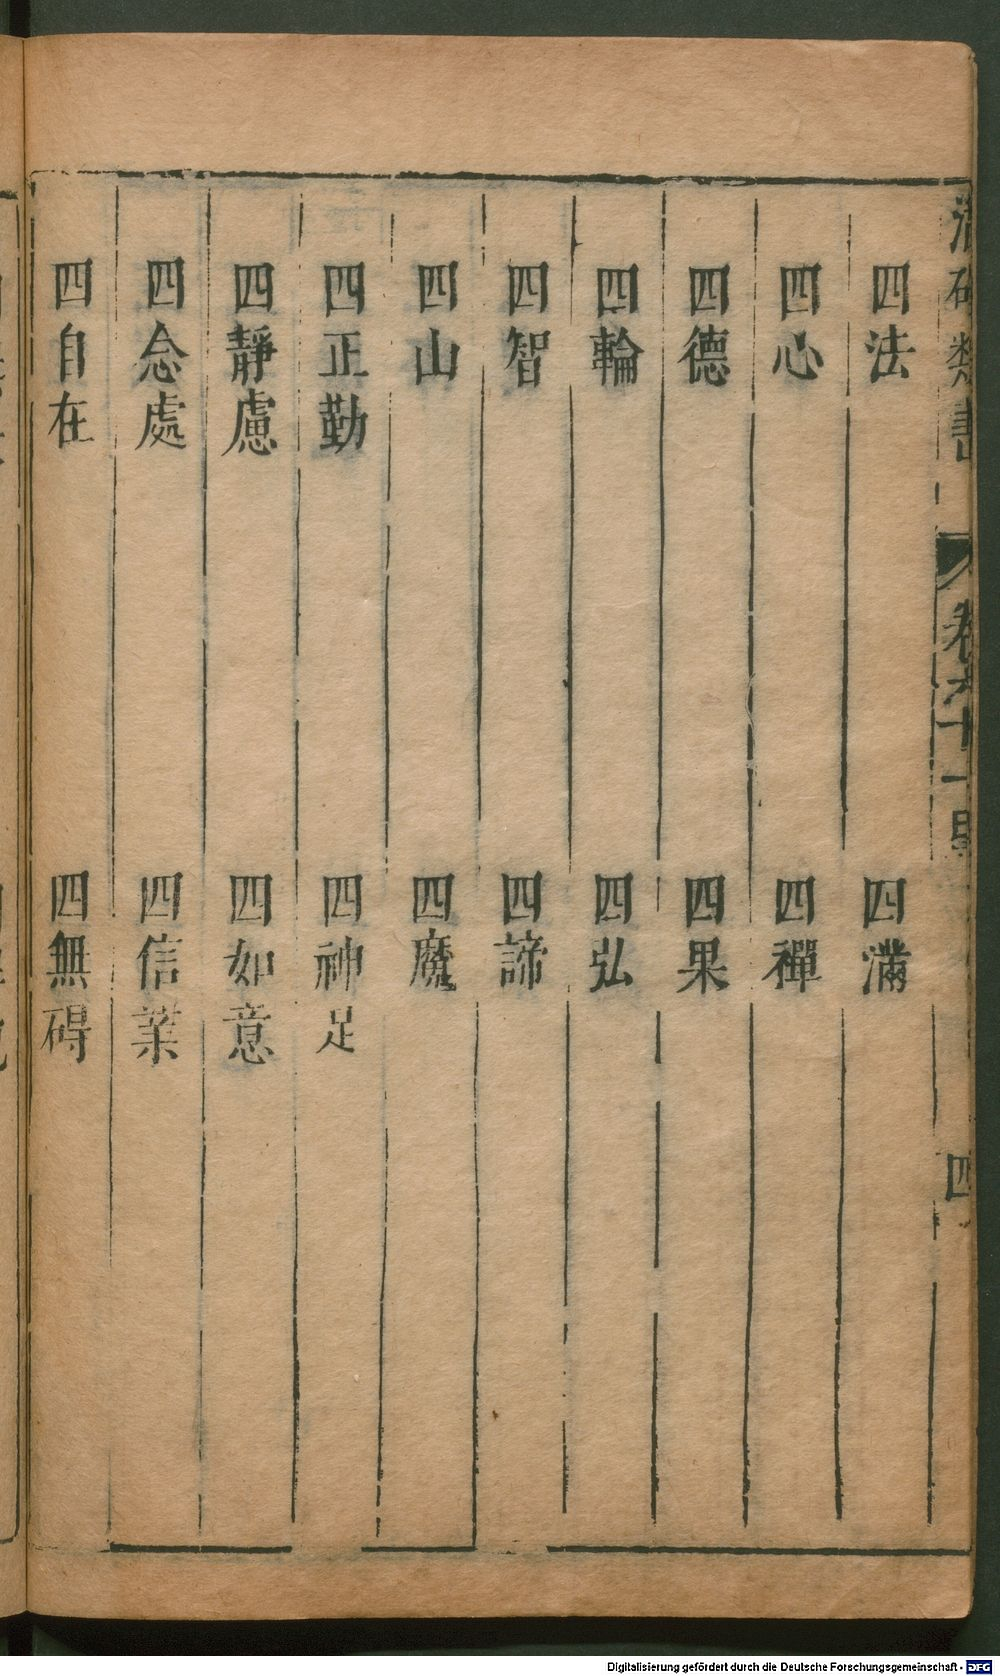 潜确類書
卷六十一
四
四法
四滿
四心
四禪
四德
四果
四輪
四弘
四智
四諦
四山
四魔
四正勤
四神足
四靜慮
四如意
四念處
四信業
四自在
四無碍
Digitalisierung gefördert durch die Deutsche Forschungsgemeinschaft - DFG